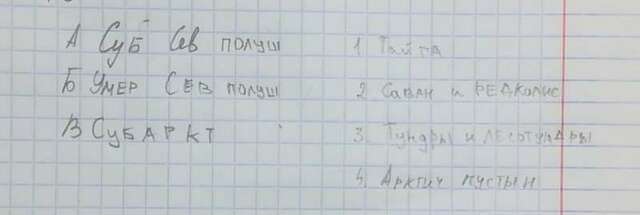 А Суб Сев полуш
1 Тайга
Б Умер Сев полуш
2 Саван и редколис
В Субаркт
3. Тундры и лесотундры
4. Арктич пустын